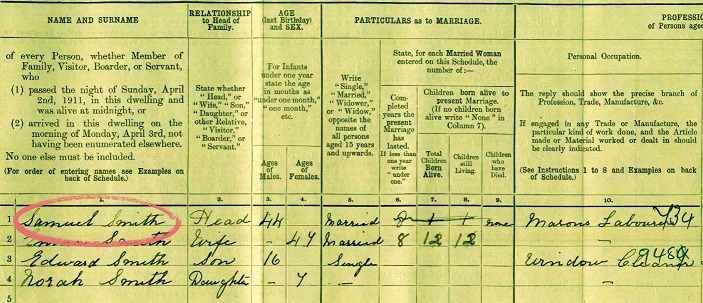 NAME AND SURNAME
RELATIONSHIP
to Head of
Family.
AGE
(last Birthday)
and SEX.
PARTICULARS as to MARRIAGE.
PROFESSIO
of Persons aged
of every Person, whether Member of
Family, Visitor, Boarder, or Servant,
who
(1) passed the night of Sunday, April
2nd, 1911, in this dwelling and
was alive at midnight, or
(2) arrived in this dwelling on the
morning of Monday, April 3rd, not
having been enumerated elsewhere.
No one else must be included.
(For order of entering names see Examples on
back of Schedule.)
State whether
"Head," or
"Wife," "Son,"
"Daughter," or
other Relative,
"Visitor,"
"Boarder," or
"Servant."
For Infants
under one year
state the age
in months as
"under one month,"
"one month,"
etc.
Ages
of
Males.
Ages
of
Females.
Write
"Single,"
"Married,"
"Widower,"
or "Widow,"
opposite the
names of
all persons
aged 15 years
and upwards.
State, for each Married Woman
entered on this Schedule, the
number of:—
Com-
pleted
years the
present
Marriage
has
lasted.
If less than
one year
write
"under
one."
Children born alive to
present Marriage.
(If no children born
alive write "None" in
Column 7).
Total
Children
Born
Alive.
Children
still
Living.
Children
who
have
Died.
Personal Occupation.
The reply should show the precise branch of
Profession, Trade, Manufacture, &c.
If engaged in any Trade or Manufacture, the
particular kind of work done, and the Article
made or Material worked or dealt in should
be clearly indicated.
(See Instructions 1 to 8 and Examples on
back of Schedule.)
1. 2. 3. 4. 5. 6. 7. 8. 9. 10.
1 Samuel Smith Head 44 Married none Masons Labourer
2 Smith Wife – 47 Married 8 12 12 –
3 Edward Smith Son 16 Single Window Cleaner
4 Norah Smith Daughter – 7 –
5